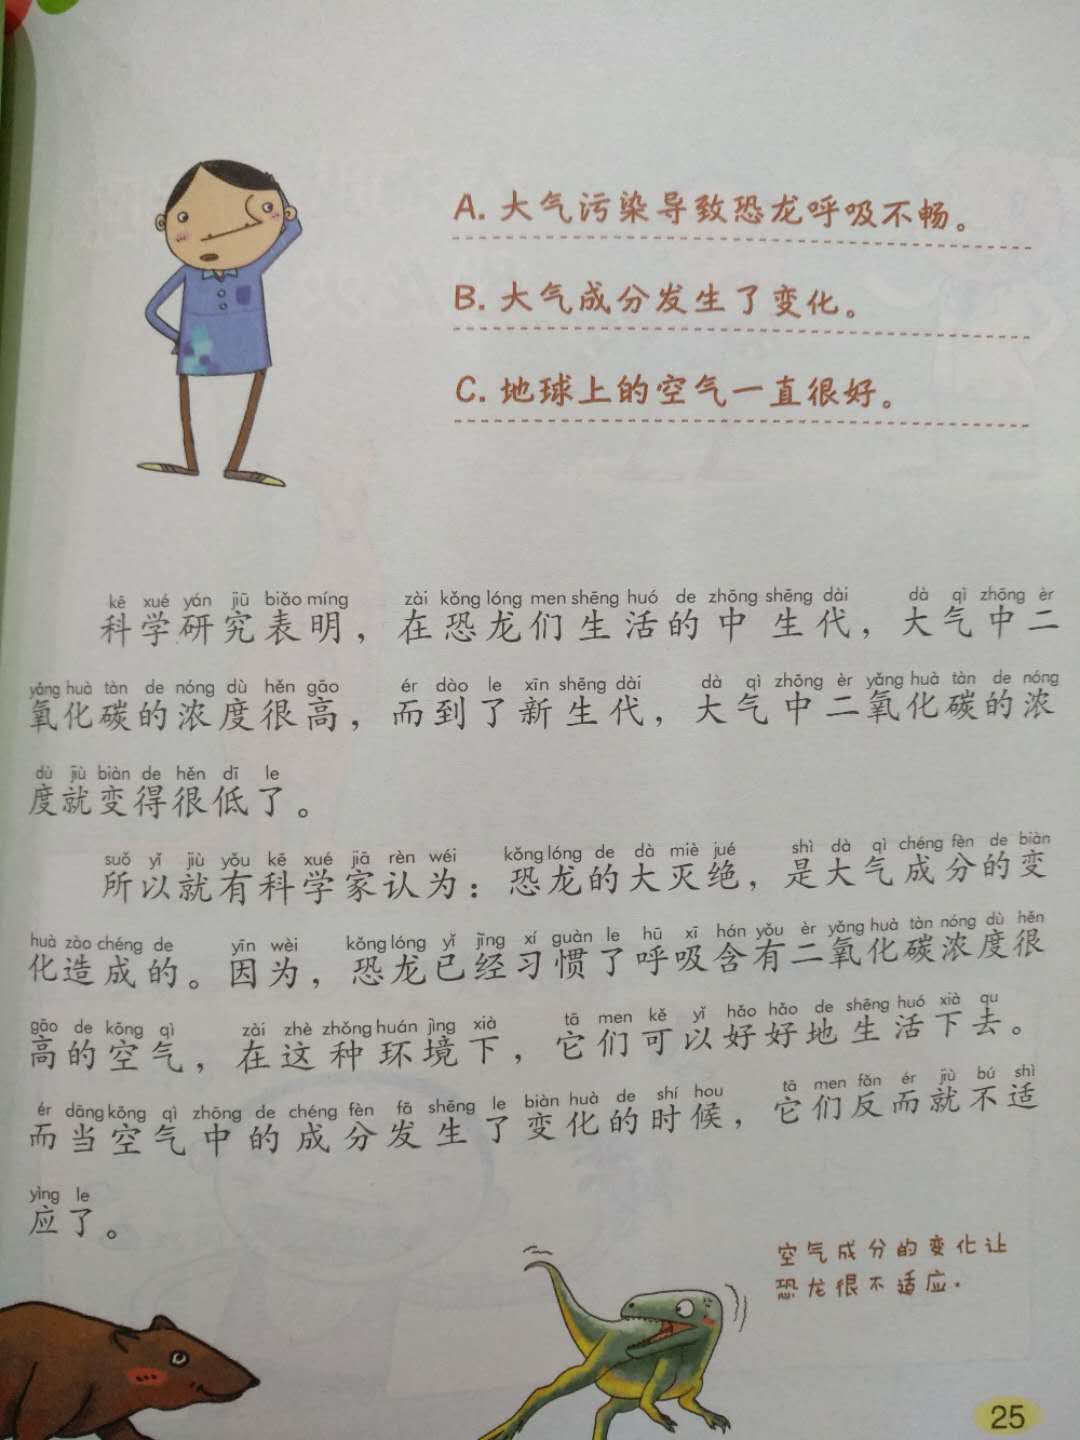 A. 大气污染导致恐龙呼吸不畅。
B. 大气成分发生了变化。
C. 地球上的空气一直很好。
kē xué yán jiū biǎo míng zài kǒng lóng men shēng huó de zhōng shēng dài dà qì zhōng èr
科学研究表明，在恐龙们生活的中生代，大气中二
yǎng huà tàn de nóng dù hěn gāo ér dào le xīn shēng dài dà qì zhōng èr yǎng huà tàn de nóng
氧化碳的浓度很高，而到了新生代，大气中二氧化碳的浓
dù jiù biàn de hěn dī le
度就变得很低了。
suǒ yǐ jiù yǒu kē xué jiā rèn wéi kǒng lóng de dà miè jué shì dà qì chéng fèn de biàn
所以就有科学家认为：恐龙的大灭绝，是大气成分的变
huà zào chéng de yīn wèi kǒng lóng yǐ jīng xí guàn le hū xī hán yǒu èr yǎng huà tàn nóng dù hěn
化造成的。因为，恐龙已经习惯了呼吸含有二氧化碳浓度很
gāo de kōng qì zài zhè zhǒng huán jìng xià tā men kě yǐ hǎo hǎo de shēng huó xià qu
高的空气，在这种环境下，它们可以好好地生活下去。
ér dāng kōng qì zhōng de chéng fèn fā shēng le biàn huà de shí hou tā men fǎn ér jiù bú shì
而当空气中的成分发生了变化的时候，它们反而就不适
yìng le
应了。
空气成分的变化让
恐龙很不适应.
25